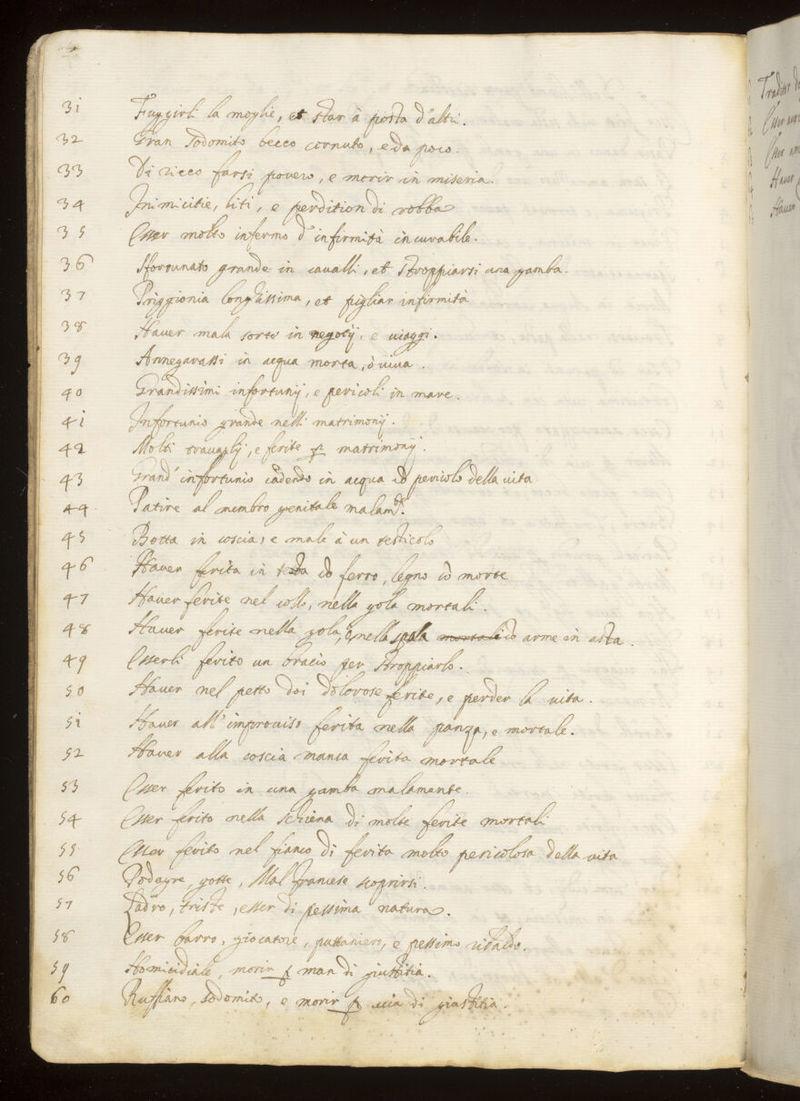 31 Fuggirli la moglie, et star à posta d'altri.
32 Gran sodomito becco cornuto, e da poco.
33 Di ricco farsi povero, e morir in miseria.
34 Inimicitie, liti, e perdition di robba
35 Esser molto infermo d'infirmità incurabile.
36 Sfortunato grande in cavalli, et stroppiarsi una gamba.
37 Priggionia longhissima, et pigliar infirmità
38 Haver mala sorte in negotij, e viaggi.
39 Annegarassi in acqua morta, ò viva.
40 Grandissimi infortunij, e pericoli in mare.
41 Infortunio grande nelli matrimonij.
42 Molti travaglij, e ferite p matrimonij.
43 Grand' infortunio cadendo in acqua cõ pericolo della vita
44 Patire al membro genitale malamte.
45 Botta in coscia, e male à un testicolo
46 Haver ferita in testa cõ ferro, legno cõ morte
47 Haver ferite nel collo, nella gola mortali.
48 Haver ferite nella gola, ò nella spala mortali cõ arme in asta.
49 Esserli ferito un bracio per stroppiarlo.
50 Haver nel petto doi dolorose ferite, e perder la vita.
51 Haver all'improviso ferita nella panza, e mortale.
52 Haver alla coscia manca ferita mortale
53 Esser ferito in una gamba malamente.
54 Esser ferito nella schiena di molte ferite mortali
55 Esser ferito nel fianco di ferita molto pericolosa della vita
56 Podagre gotte, Mal francese scoprirsi.
57 Ladro, triste, esser di pessima natura.
58 Esser barro, giocatore, puttaniero, e pessimo ribaldo.
59 Homicidiale, morir p man di giustitia.
60 Ruffiano, sodomito, e morir p via di giustitia.
Traditor
Esser
Esser
Haver
Haver